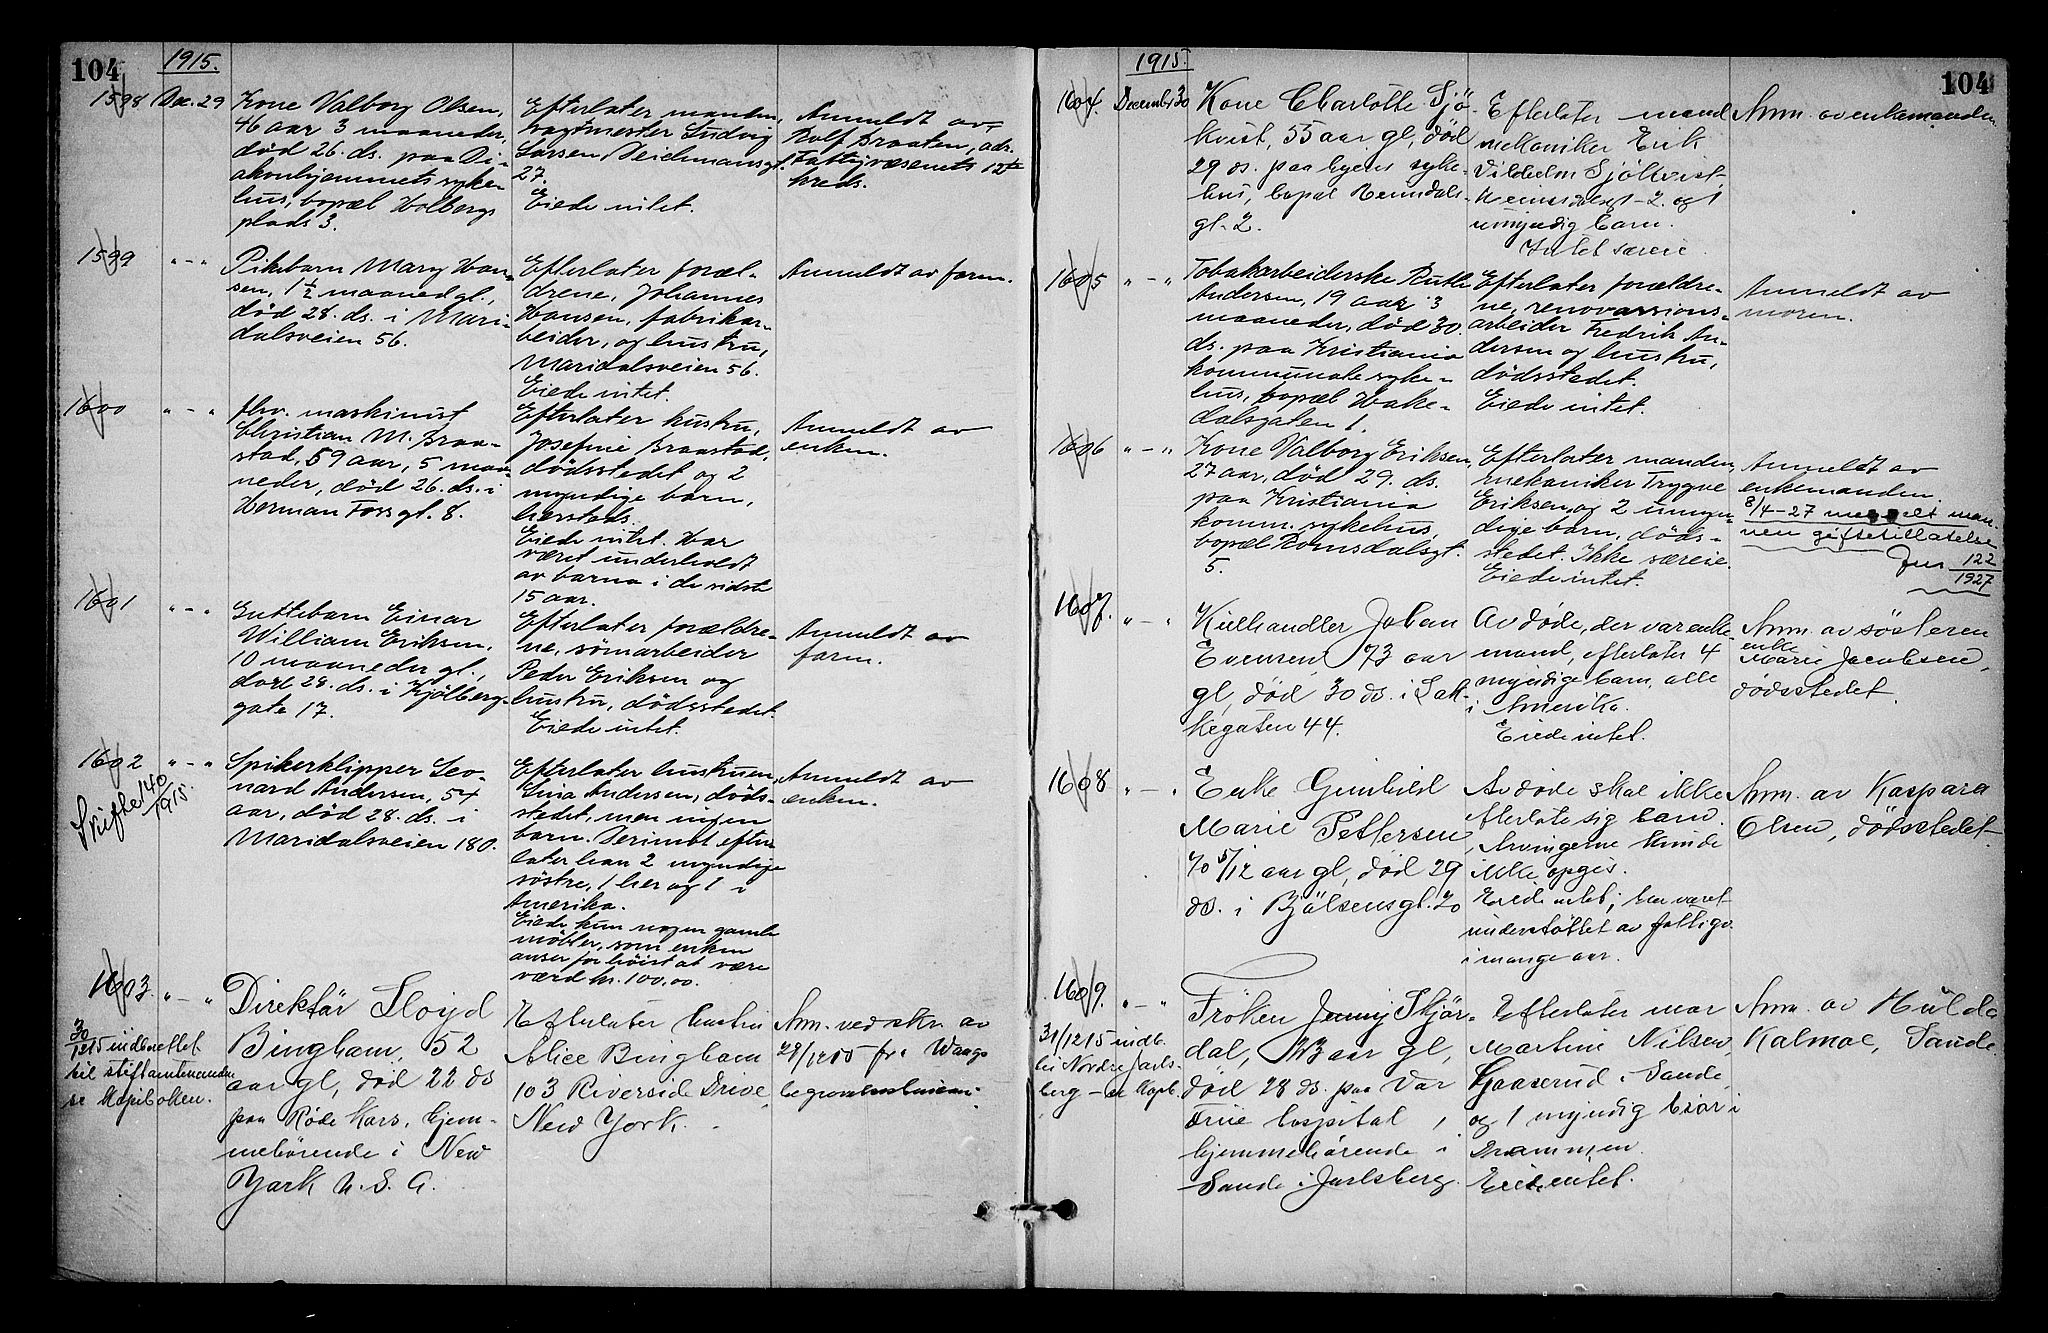 104
1915.
1598
Dec. 29
Kone Valborg Olsen,
46 aar 3 maaneder,
død 26. ds. paa Di-
akonhjemmets syke-
hus, bopæl Holbergs
plads 3.
Efterlater manden,
vagtmester Ludvig
Larsen, Deichmansgt.
27.
Eiede intet.
Anmeldt av
Rolf Braaten, adr.
Fattigvæsenets 12te
kreds.
1599
" - "
Pikebarn Mary Han-
sen, 1 1/2 maaned gl.,
død 28. ds. i Mari-
dalsveien 56.
Efterlater foræl-
drene, Johannes
Hansen, fabrikar-
beider, og hustru,
Maridalsveien 56.
Eiede intet.
Anmeldt av faren.
1600
" - "
fhv. maskinist
Christian M. Braa-
stad, 59 aar, 5 maa-
neder, død 26. ds. i
Herman Foss gt. 8.
Efterlater hustru,
Josefine Braastad,
dødsstedet og 2
myndige barn,
hersteds.
Eiede intet. Har
været underholdt
av barna i de sidste
15 aar.
Anmeldt av
enken.
1601
" - "
Guttebarn Einar
William Eriksen,
10 maaneder gl.,
død 28. ds. i Kjölberg-
gate 17.
Efterlater forældre-
ne, sömarbeider
Peder Eriksen og
hustru, dödsstedet.
Eiede intet.
Anmeldt av
faren.
1602
" - "
Skifte 140/1915.
Spikerklipper Leo-
nard Andersen, 54
aar, död 28. ds. i
Maridalsveien 180.
Efterlater hustruen,
Lina Andersen, döds-
stedet, men ingen
barn. Derimot efter-
later han 2 myndige
söstre, 1 her og 1 i
Amerika.
Eiede kun nogen gamle
möbler, som enken
anser for höist at være
værd kr. 100,00.
Anmeldt av
enken.
1603.
" - "
30/1215 indberettet
til stiftamtmanden
se Kopiboken.
Direktör Lloyd
Bingham, 52
aar gl, död 22 ds
paa Röde Kors, hjem-
mehörende i New
York U. S. A.
Efterlater hustru
Alice Bingham
103 Riverside Drive,
New York.
Anm. ved skr. av
fra Waage
104
1915.
1604.
December 30
Kone Charlotte Sjö-
kvist, 55 aar gl, död
29 ds. paa byens syke-
hus, bopæl Reinsdals-
gt. 2.
Efterlater mand
mekaniker Erik
Vilhelm Sjökvist,
og 1
umyndig barn.
Intet særeie.
Anm. av enkemanden
1605
" - "
Tobakarbeiderske Ruth
Andersen, 19 aar 3
maaneder, död 30.
ds. paa Kristiania
kommunale syke-
hus, bopæl Hake-
dalsgaten 1.
Efterlater forældre-
ne, renovassions-
arbeider Fredrik An-
dersen og hustru,
dödsstedet.
Eiede intet.
Anmeldt av
moren.
1606
" - "
Kone Valborg Eriksen,
27 aar, död 29. ds.
paa Kristiania
komm. sykehus,
bopæl Romsdalsgt.
5.
Efterlater manden,
mekaniker Trygve
Eriksen, og 2 umyn-
dige barn, döds-
stedet. Ikke særeie.
Eiede intet.
Anmeldt av
enkemanden.
8/4-27 meddelt man-
nen giftetillatelse
Jnr 122/1927
1607.
" - "
Kulhandler Johan
Evensen, 73 aar
gl, död 30 ds. i Lak-
kegaten 44.
Avdöde, der var enke-
mand, efterlater 4
myndige barn, alle
i Amerika.
Eiede intet.
Anm. av sösteren
enke
Marie Jacobsen,
dödsstedet.
1608
" - "
Enke Gunhild
Marie Pettersen,
70 5/12 aar gl, död 29
ds. i Bjölsensgt. 20
Avdöde skal ikke
efterlate sig barn.
Arvingerne kunde
ikke opgis.
Eiede intet; har været
understöttet av fattigv.
i mange aar.
Anm. av Kaspara
Olsen, dödsstedet.
1609.
" - "
31/1215 indb.
til Nordre Jarls-
berg - se Kopib.
Fröken Jenny Skjör-
dal, 23 aar gl,
död 28 ds. paa Vor
Frue hospital,
hjemmehörende i
Sande i Jarlsberg.
Efterlater mor
Martine Nilsen,
Gaaserud i Sande,
og 1 myndig bror i
Drammen.
Eiede intet.
Anm. av Hulda
Kalmoe, Sande.